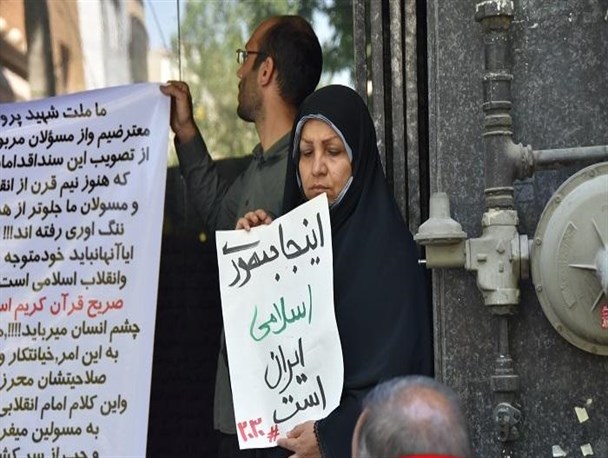 ما ملت شهید پرو
معترضیم واز مسؤلان مربو
از تصویب این سنداقداما
که هنوز نیم قرن از انقا
و مسولان ما جلوتر از هد
ننگ اوری رفته اند!!!!
ایاآنهانباید خودمتوجه
وانقلاب اسلامی است
صریح قرآن کریم اس
چشم انسان میرباید!!!!,م
به این امر,خیانتکار و
صلاحیتشان محرز
واین کلام امام انقلابی
به مسولین میفر
و جب از سر کش
اینجا جمهوری
اسلامی
ایران
است
#۲۰۳۰